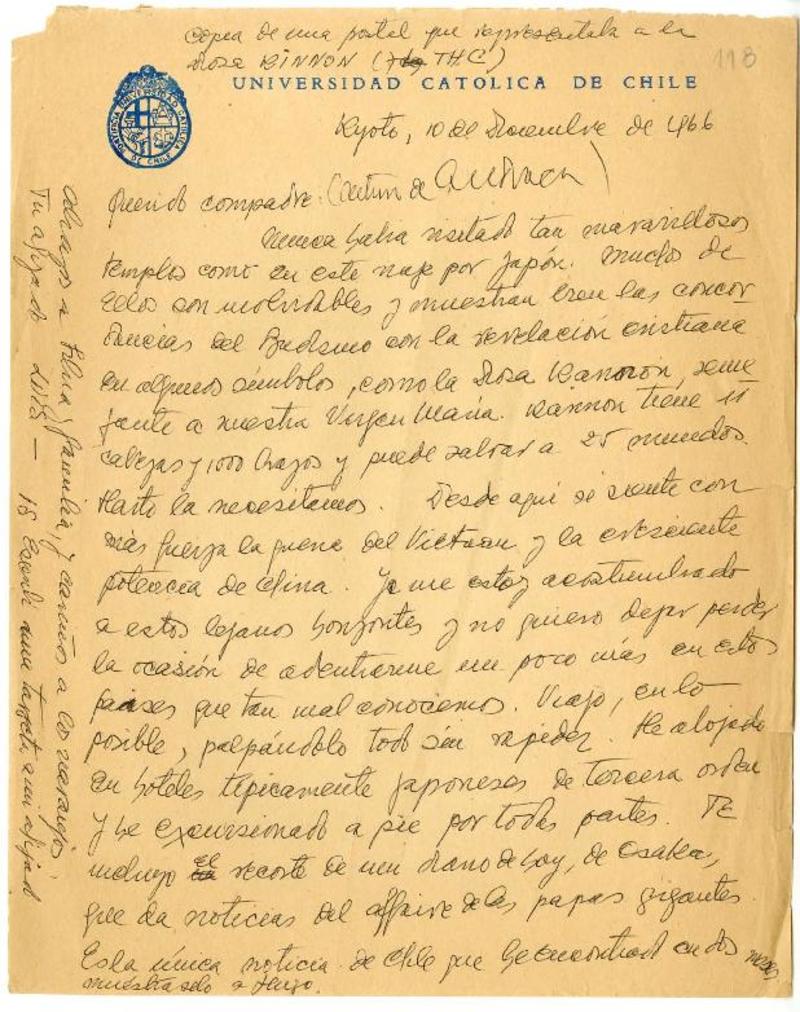 copia de una postal que representaba a la
Diosa KINNON ( THC)
118
UNIVERSIDAD CATOLICA DE CHILE
Kyoto, 10 de Diciembre de 1966
Querido compadre: (Arturo de
Nunca había visitado tan maravillosos
templos como en este viaje por Japón. Muchos de
ellos son inolvidables y muestran bien las concor
dancias del Budismo con la revelación cristiana
en algunos símbolos, como la Diosa Kannon, seme
jante a nuestra Virgen María. Kannon tiene 11
cabezas y 1000 brazos y puede salvar a 25 mundos.
Harto la necesitamos. Desde aquí se siente con
más fuerza la guerra del Vietnam y la creciente
potencia de China. Ya me estoy acostumbrado
a estos lejanos horizontes y no quiero dejar perder
la ocasión de adentrarme un poco más en estos
países que tan mal conocemos. Viajo, en lo
posible, palpándolo todo sin rapidez. He alojado
en hoteles típicamente japoneses de tercera orden
y he excursionado a pie por todas partes. TE
incluyo el recorte de un diario de hoy, de Osaka,
que da noticias del affaire de las papas gigantes.
Es la única noticia de Chile que he encontrado en dos meses
muéstraselo a
Abrazos a familia, y cariños a los
Tu ahijado LUIS — Escribí una tarjeta a mi ahijado